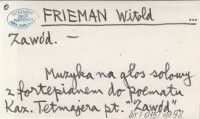 FRIEMAN Witold ...
Zawód. —
Muzyka na głos solowy
z fortepianem do poematu
Kaz. Tetmajera pt. "Zawód"